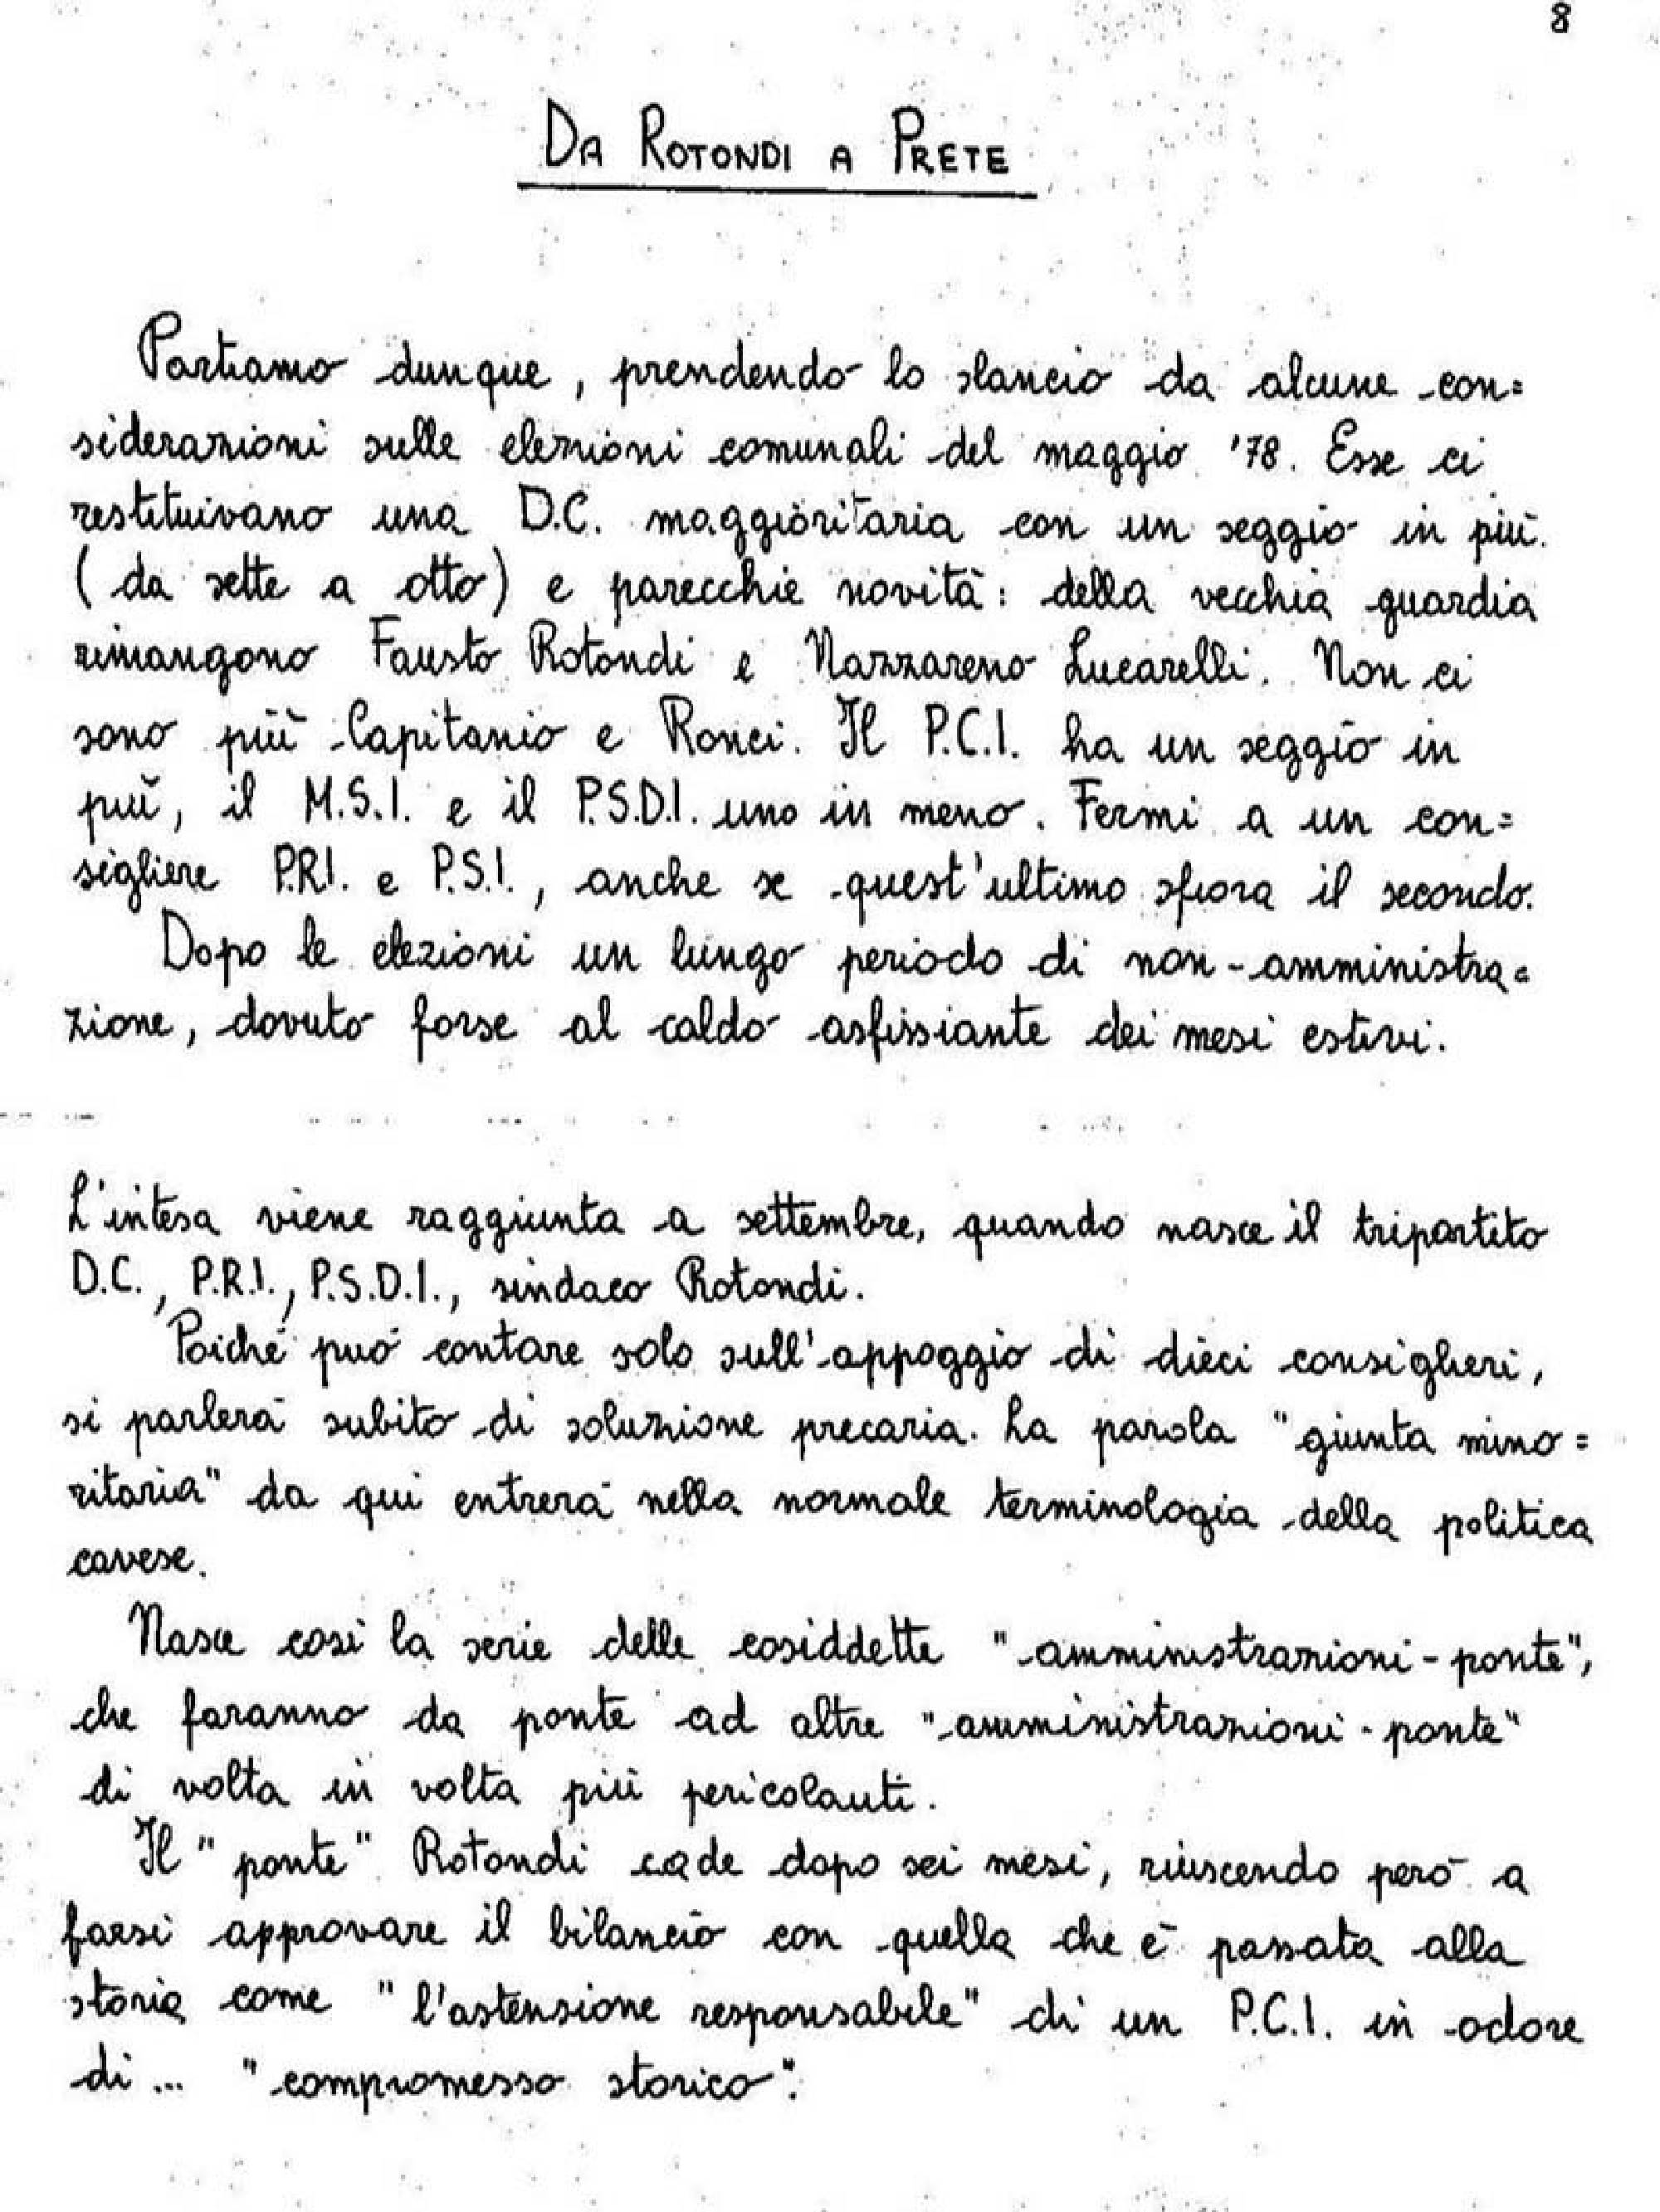 8
DA ROTONDI A PRETE
Partiamo dunque, prendendo lo slancio da alcune con=
siderazioni sulle elezioni comunali del maggio '78. Esse ci
restituivano una D.C. maggioritaria con un seggio in più
(da sette a otto) e parecchie novità: della vecchia guardia
rimangono Fausto Rotondi e Nazzareno Lucarelli. Non ci
sono più Capitanio e Ronci. Il P.C.I. ha un seggio in
più, il M.S.I. e il P.S.D.I. uno in meno. Fermi a un con=
sigliere P.R.I. e P.S.I., anche se quest'ultimo sfiora il secondo.
Dopo le elezioni un lungo periodo di non-amministra=
zione, dovuto forse al caldo asfissiante dei mesi estivi.
L'intesa viene raggiunta a settembre, quando nasce il tripartito
D.C., P.R.I., P.S.D.I., sindaco Rotondi.
Poiché può contare solo sull'appoggio di dieci consiglieri,
si parlerà subito di soluzione precaria. La parola "giunta mino=
ritaria" da qui entrerà nella normale terminologia della politica
cavese.
Nasce così la serie delle cosiddette "amministrazioni-ponte",
che faranno da ponte ad altre "amministrazioni-ponte"
di volta in volta più pericolanti.
Il "ponte" Rotondi cade dopo sei mesi, riuscendo però a
farsi approvare il bilancio con quella che è passata alla
storia come "l'astensione responsabile" di un P.C.I. in odore
di... "compromesso storico".